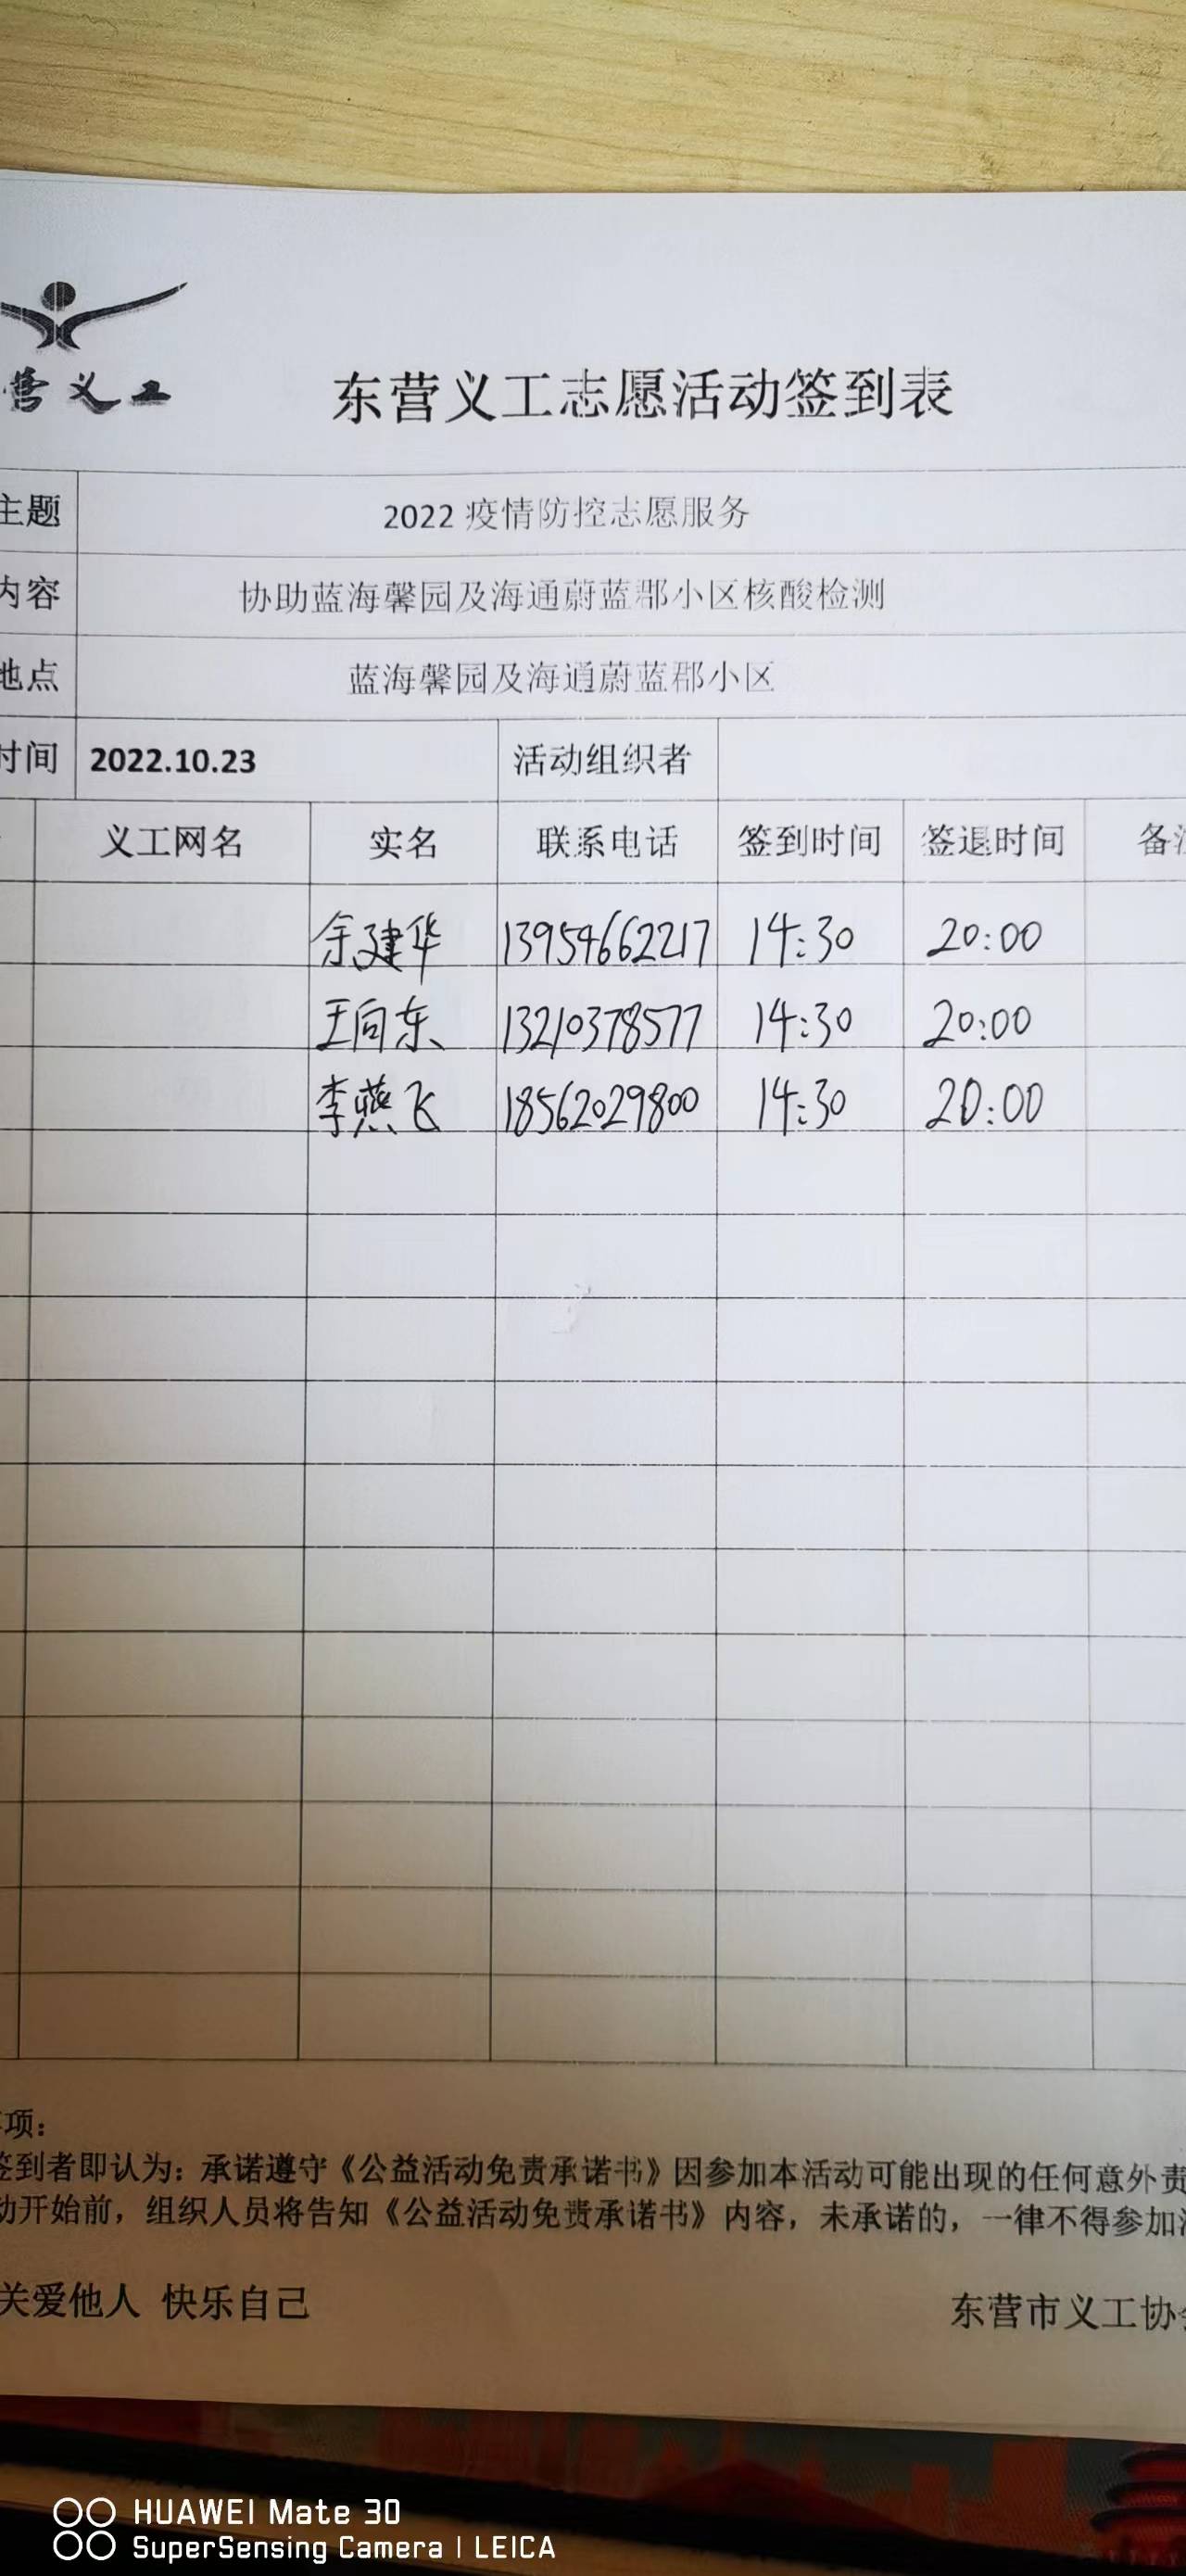 营义工
东营义工志愿活动签到表
主题 2022 疫情防控志愿服务
内容 协助蓝海馨园及海通蔚蓝郡小区核酸检测
地点 蓝海馨园及海通蔚蓝郡小区
时间 2022.10.23 活动组织者
义工网名 实名 联系电话 签到时间 签退时间 备
余建华 13954662217 14:30 20:00
王向东 13210378577 14:30 20:00
李燕飞 18562029800 14:30 20:00
项：
签到者即认为：承诺遵守《公益活动免责承诺书》因参加本活动可能出现的任何意外责
动开始前，组织人员将告知《公益活动免责承诺书》内容，未承诺的，一律不得参加
关爱他人 快乐自己
东营市义工协
HUAWEI Mate 30
SuperSensing Camera | LEICA